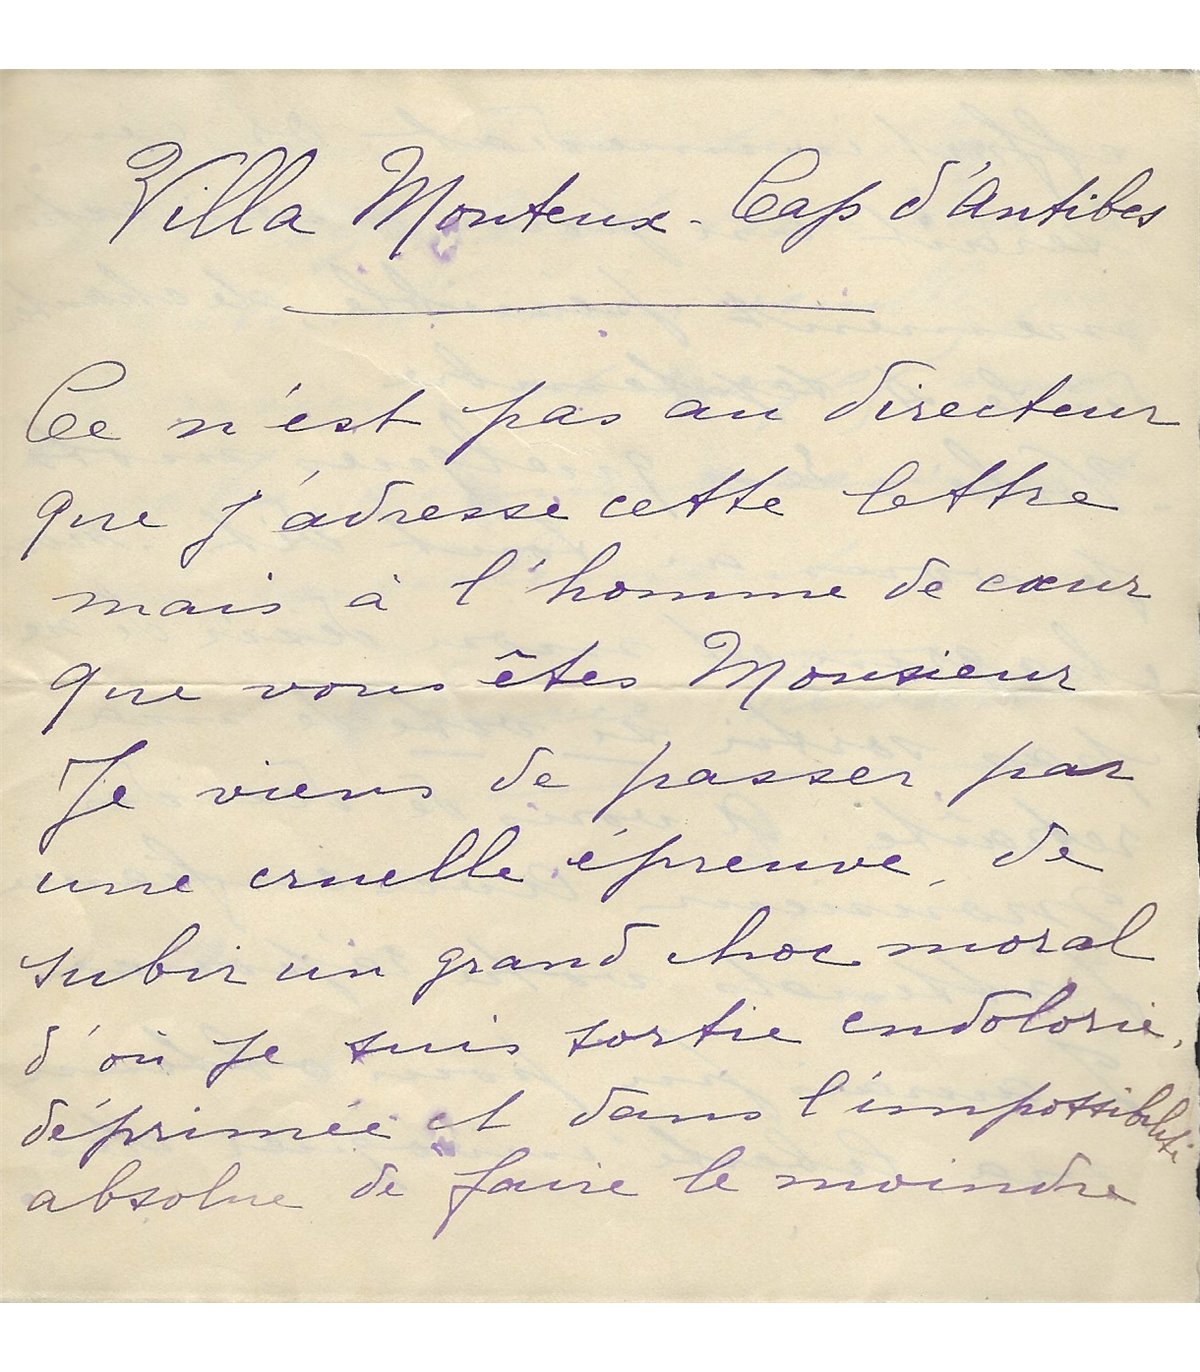 Villa Monteux - Cap d'Antibes
Ce n'est pas au directeur
que j'adresse cette lettre
mais à l'homme de cœur
que vous êtes Monsieur
Je viens de passer par
une cruelle épreuve, de
subir un grand choc moral
d'où je suis sortie endolorie,
déprimée et dans l'impossibilité
absolue de faire le moindre